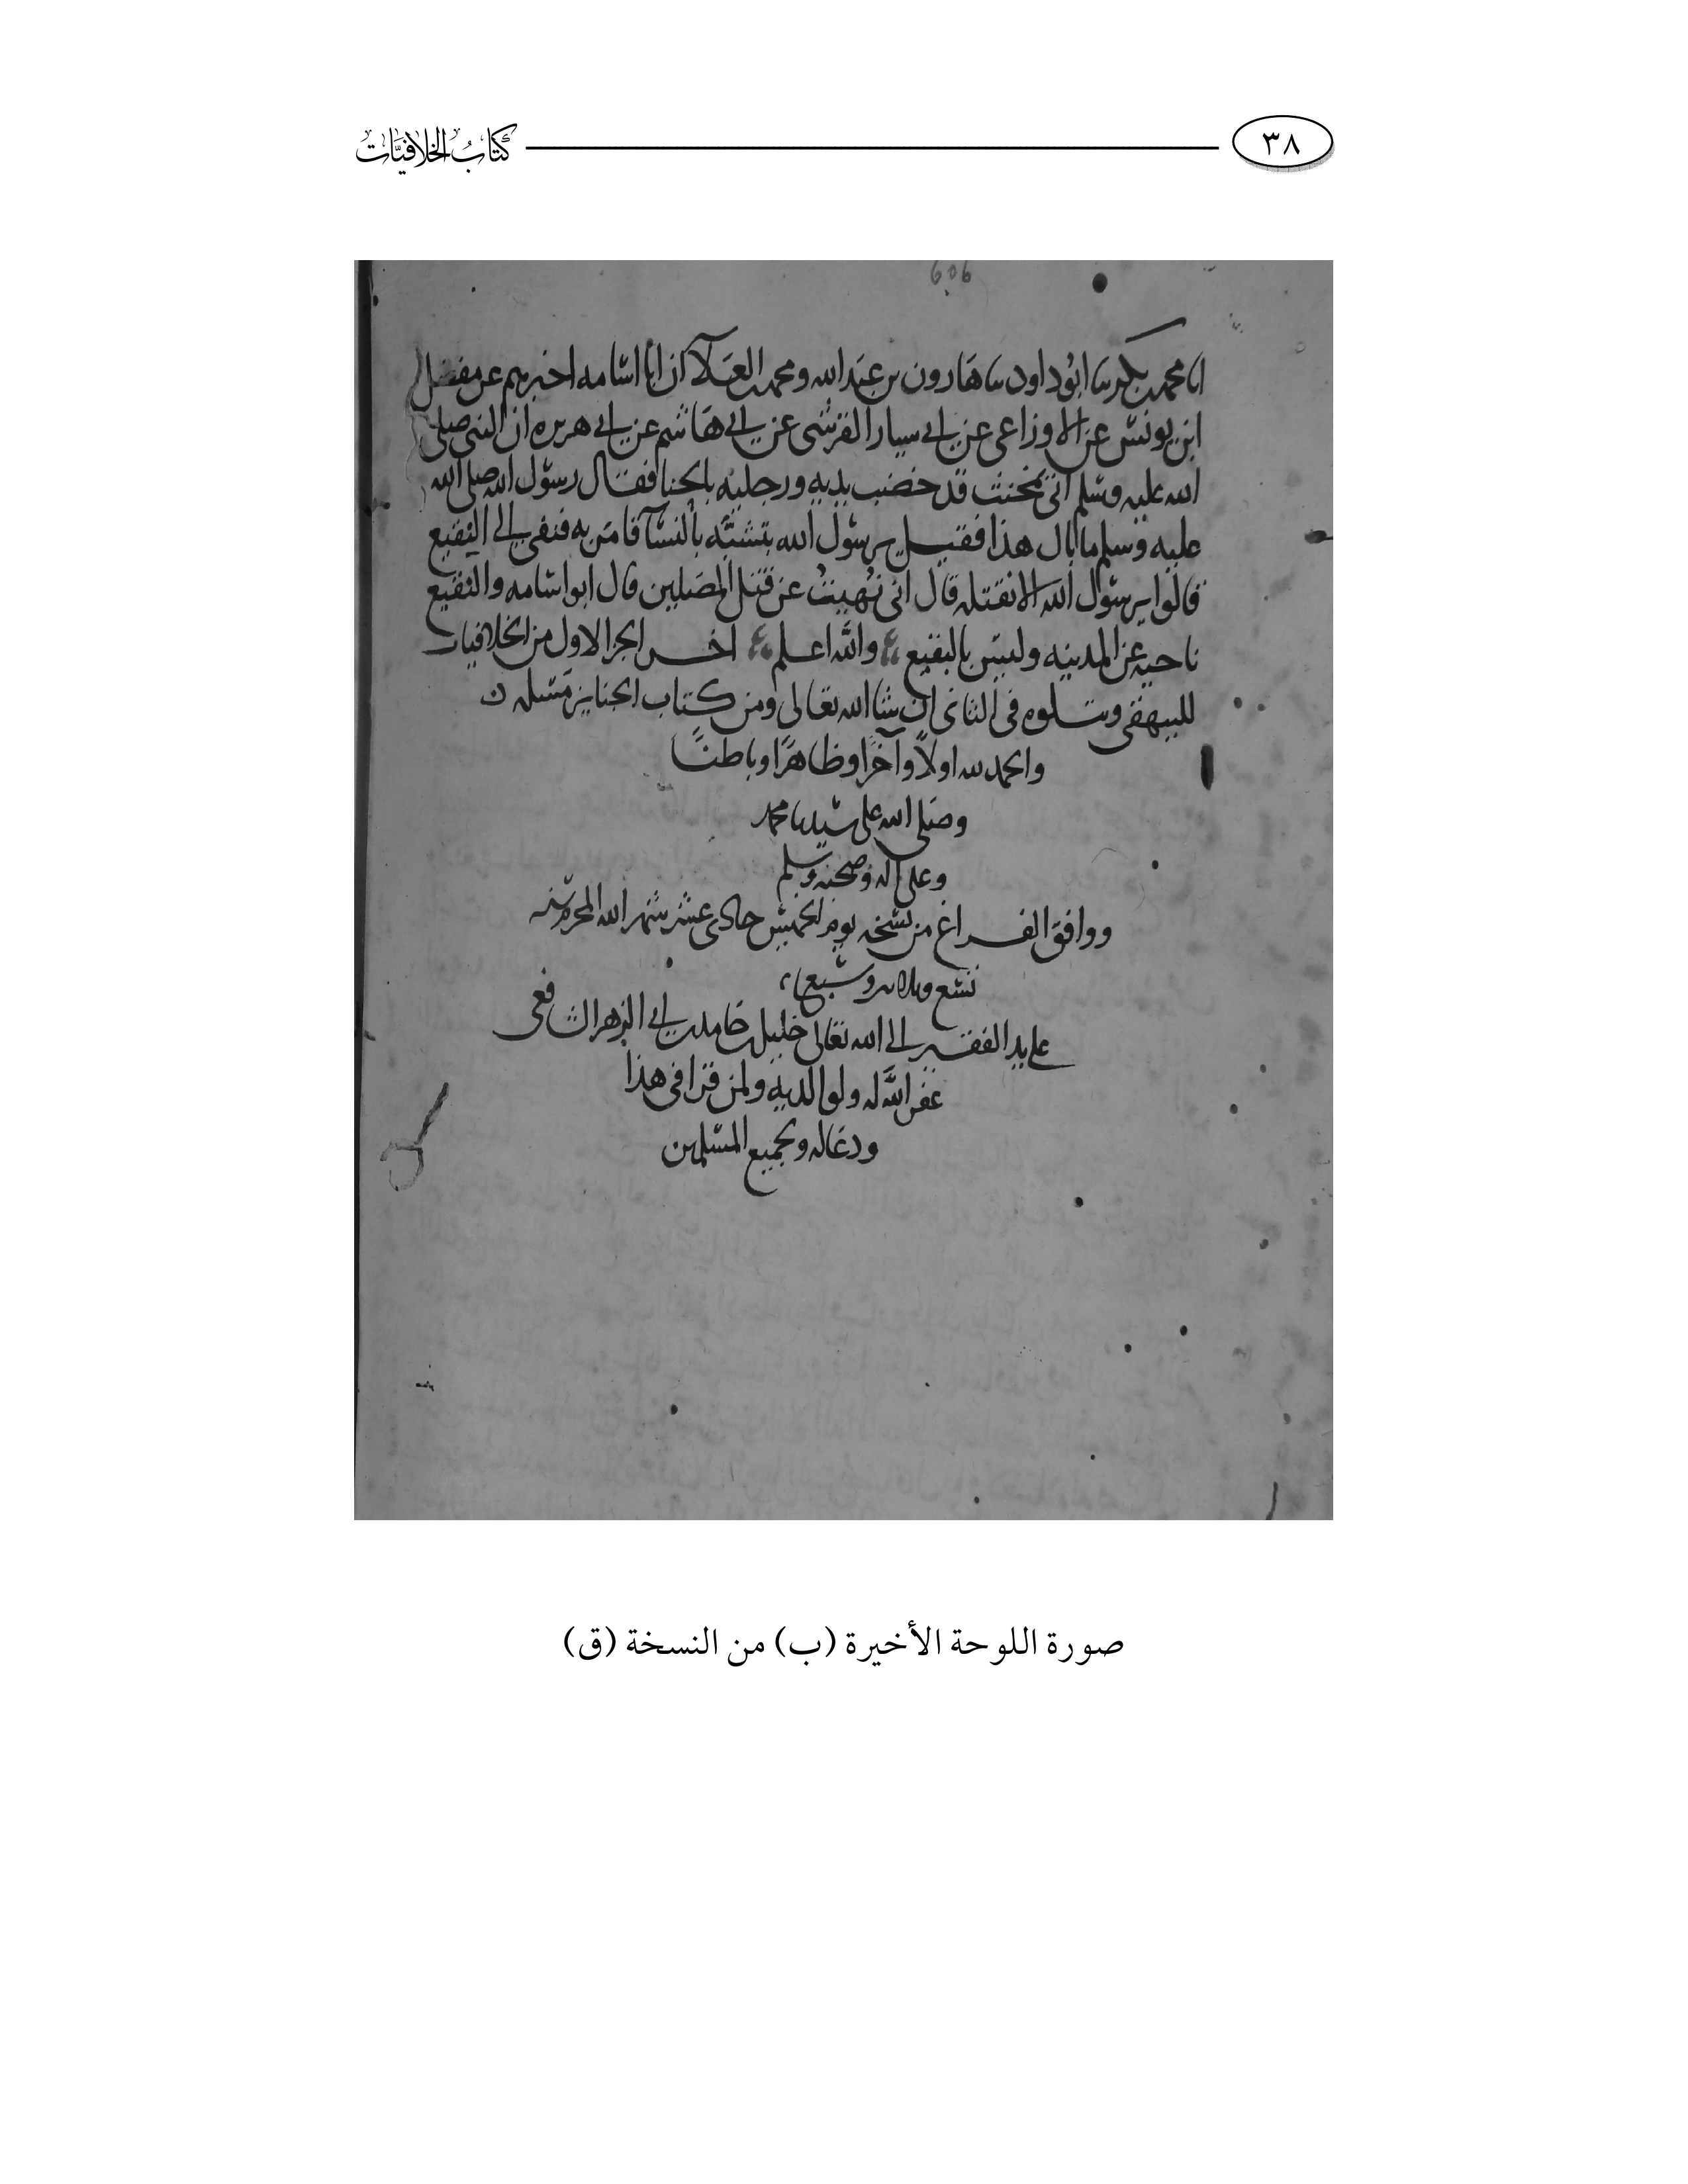 ٣٨ كتاب الخلافيات
انا محمد بن بكر سا ابوداود سا هارون بن عبد الله ومحمد بن العلآ ان ابا اسامه اخبرهم عن مفضل
ابن يونس عن الاوزاعي عن ابي سيار القرشي عن ابي هاشم عن ابي هريره ان النبي صلى
الله عليه وسلم اتى بمخنث قد خضب يديه ورجليه بالحنا فقال رسول الله صلى الله
عليه وسلم ما بال هذا فقيل يرسول الله يتشبّه بالنسآ فامر به فنفي الى النقيع
قالوا يرسول الله الا نقتله قال اني نُهيتُ عن قتل المصلين قال ابو اسامه والنقيع
ناحيه عن المدينه وليس بالبقيع والله اعلم اخر الجز الاول من الخلافيات
للبيهقي ويتلوه في الثاني ان شا الله تعالى ومن كتاب الجنايز مسله
والحمد لله اولاً وآخرًا وظاهرًا وباطنًا
وصلى الله على سيدنا محمد
وعلى اله وصحبه وسلم
ووافق الفراغ من نسخه يوم الخميس حادي عشر شهر الله المحرم سنه
تسع وسبع
على يد الفقير الى الله تعالى خليل بن حامد بن ابي الزهر الشافعي
غفر الله له ولوالديه ولمن قرا في هذا
ودعا له ولجميع المسلمين
صورة اللوحة الأخيرة (ب) من النسخة (ق)